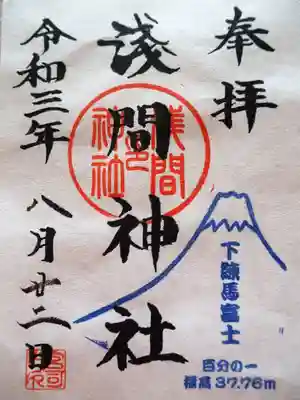 奉拝
淺間神社
令和三年八月廿二日
淺間
神社
下練馬富士
百分の一
標高37.76m